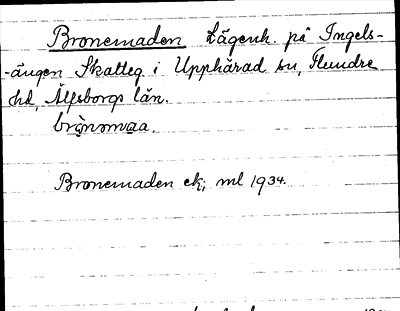 Bronemaden Lägenh. på Ingels-
-ängen Skatteg. i Upphärad sn, Flundre
hd, Älfsborgs län.
Bronemaden ek; ml 1934.